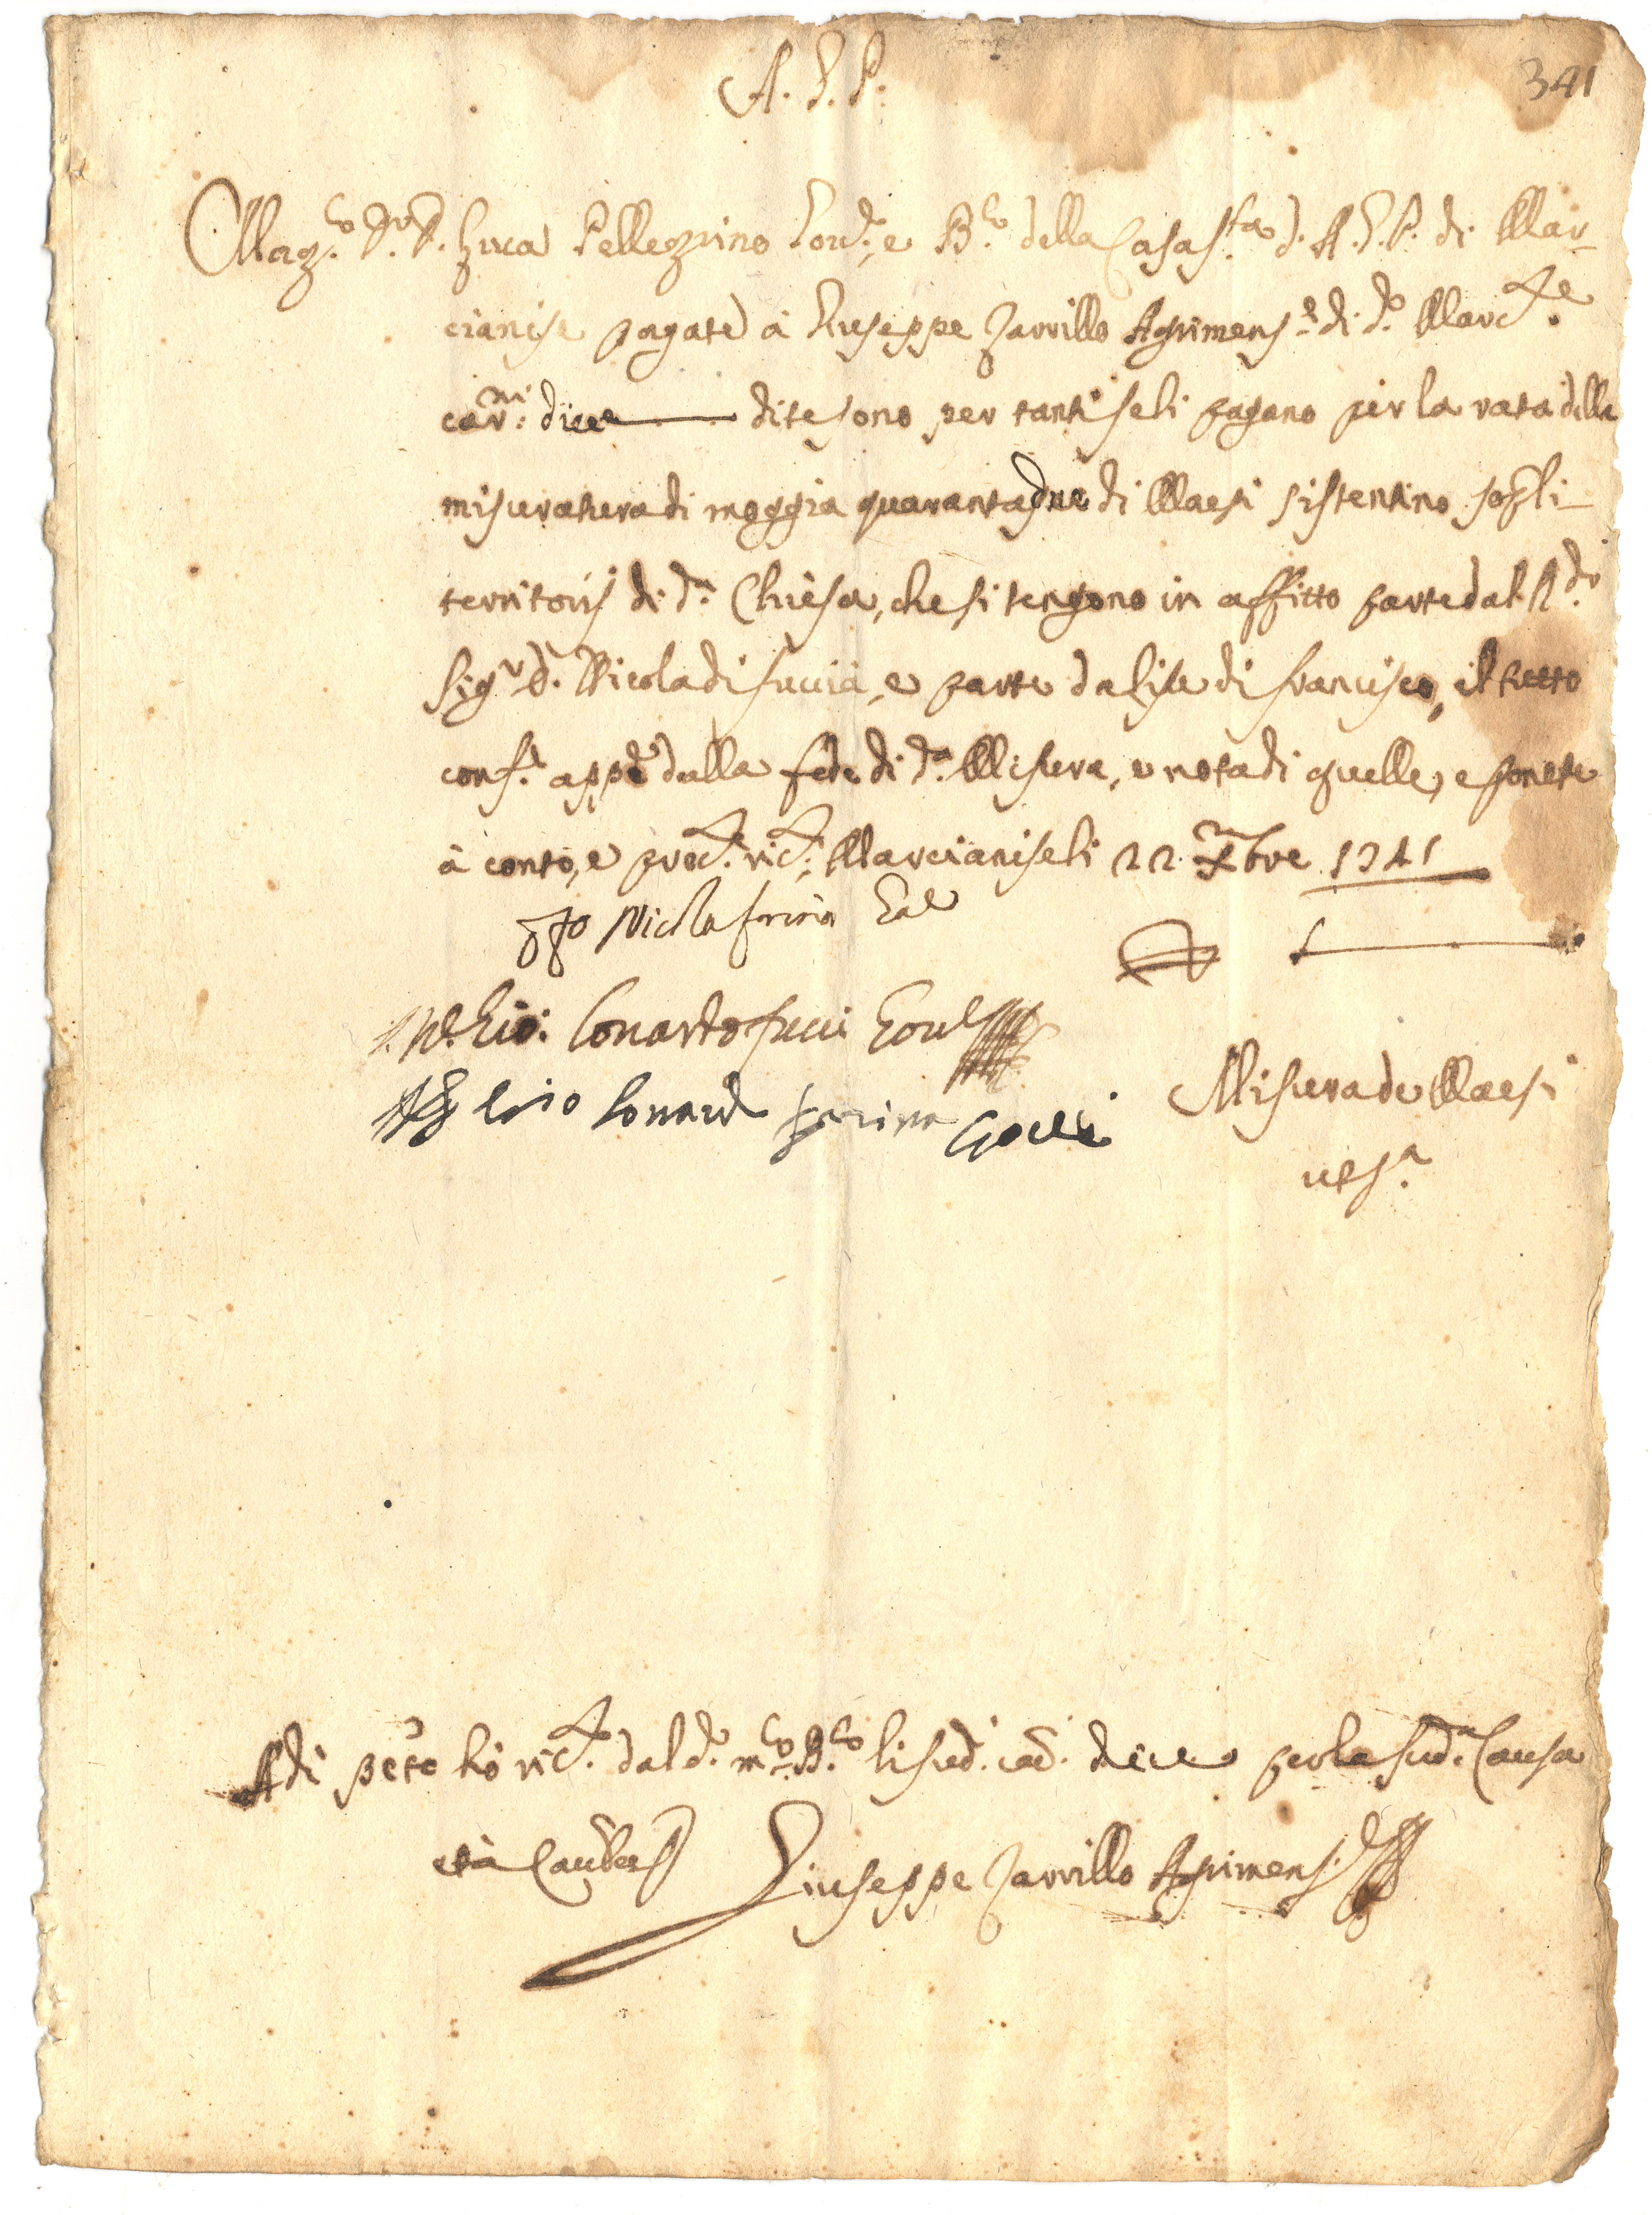 A. G. P.
341
Mag.co D.r D. Luca Pellegrino Gov.re, e B.co della Casa S.ta d. A. G. P. di Mar-
cianise pagate à Giuseppe Jarrillo Agrimens.e di d.o Marc.se
car.ni diece dite sono per tanti seli pagano per la rata della
misuratura di moggia quarantadue di Maesi sistentino sop. li
territorij di d.a Chiesa, che si tengono in affitto parte dal R.do
Sig.r D. Nicola di fuccia, e parte da Lise di francisco, il tutto
conf.e app.e dalla fede di d.a Misura, e nota di quelle, e ponete
à conto, e prec. ric. Marcianise li 22 Xbre 1741
Nicola
Gio: Conardo fucci Gov.
Misura de Maesi
ut s.a
Adi p.te hò ric. dal d. m.co B.co li sud. car. diece per la sud.a Causa
et à Cautela Giuseppe Jarrillo Agrimens.e